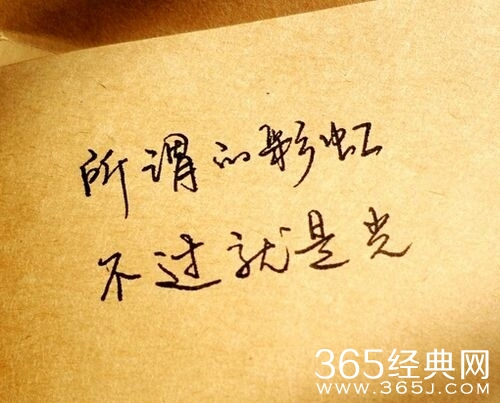 所谓的彩虹
不过就是光
365经典网
WWW.365J.COM